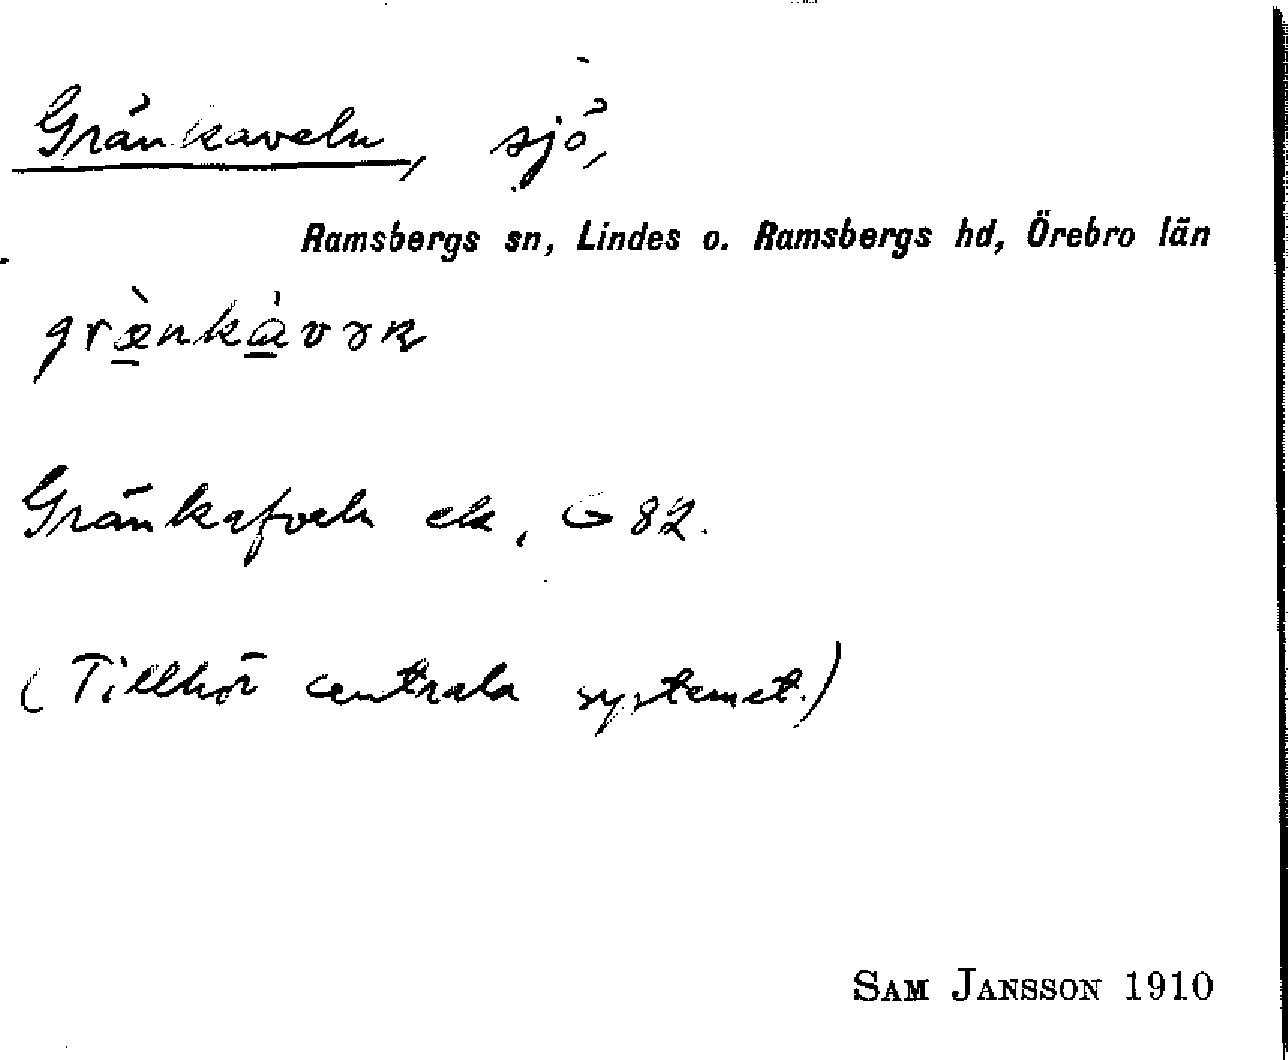 Gränkaveln, sjö,
Ramsbergs sn, Lindes o. Ramsbergs hd, Örebro län
græ̀nkávəɴ
Gränkafveln ek. G 82.
(Tillhör centrala systemet.)
SAM JANSSON 1910